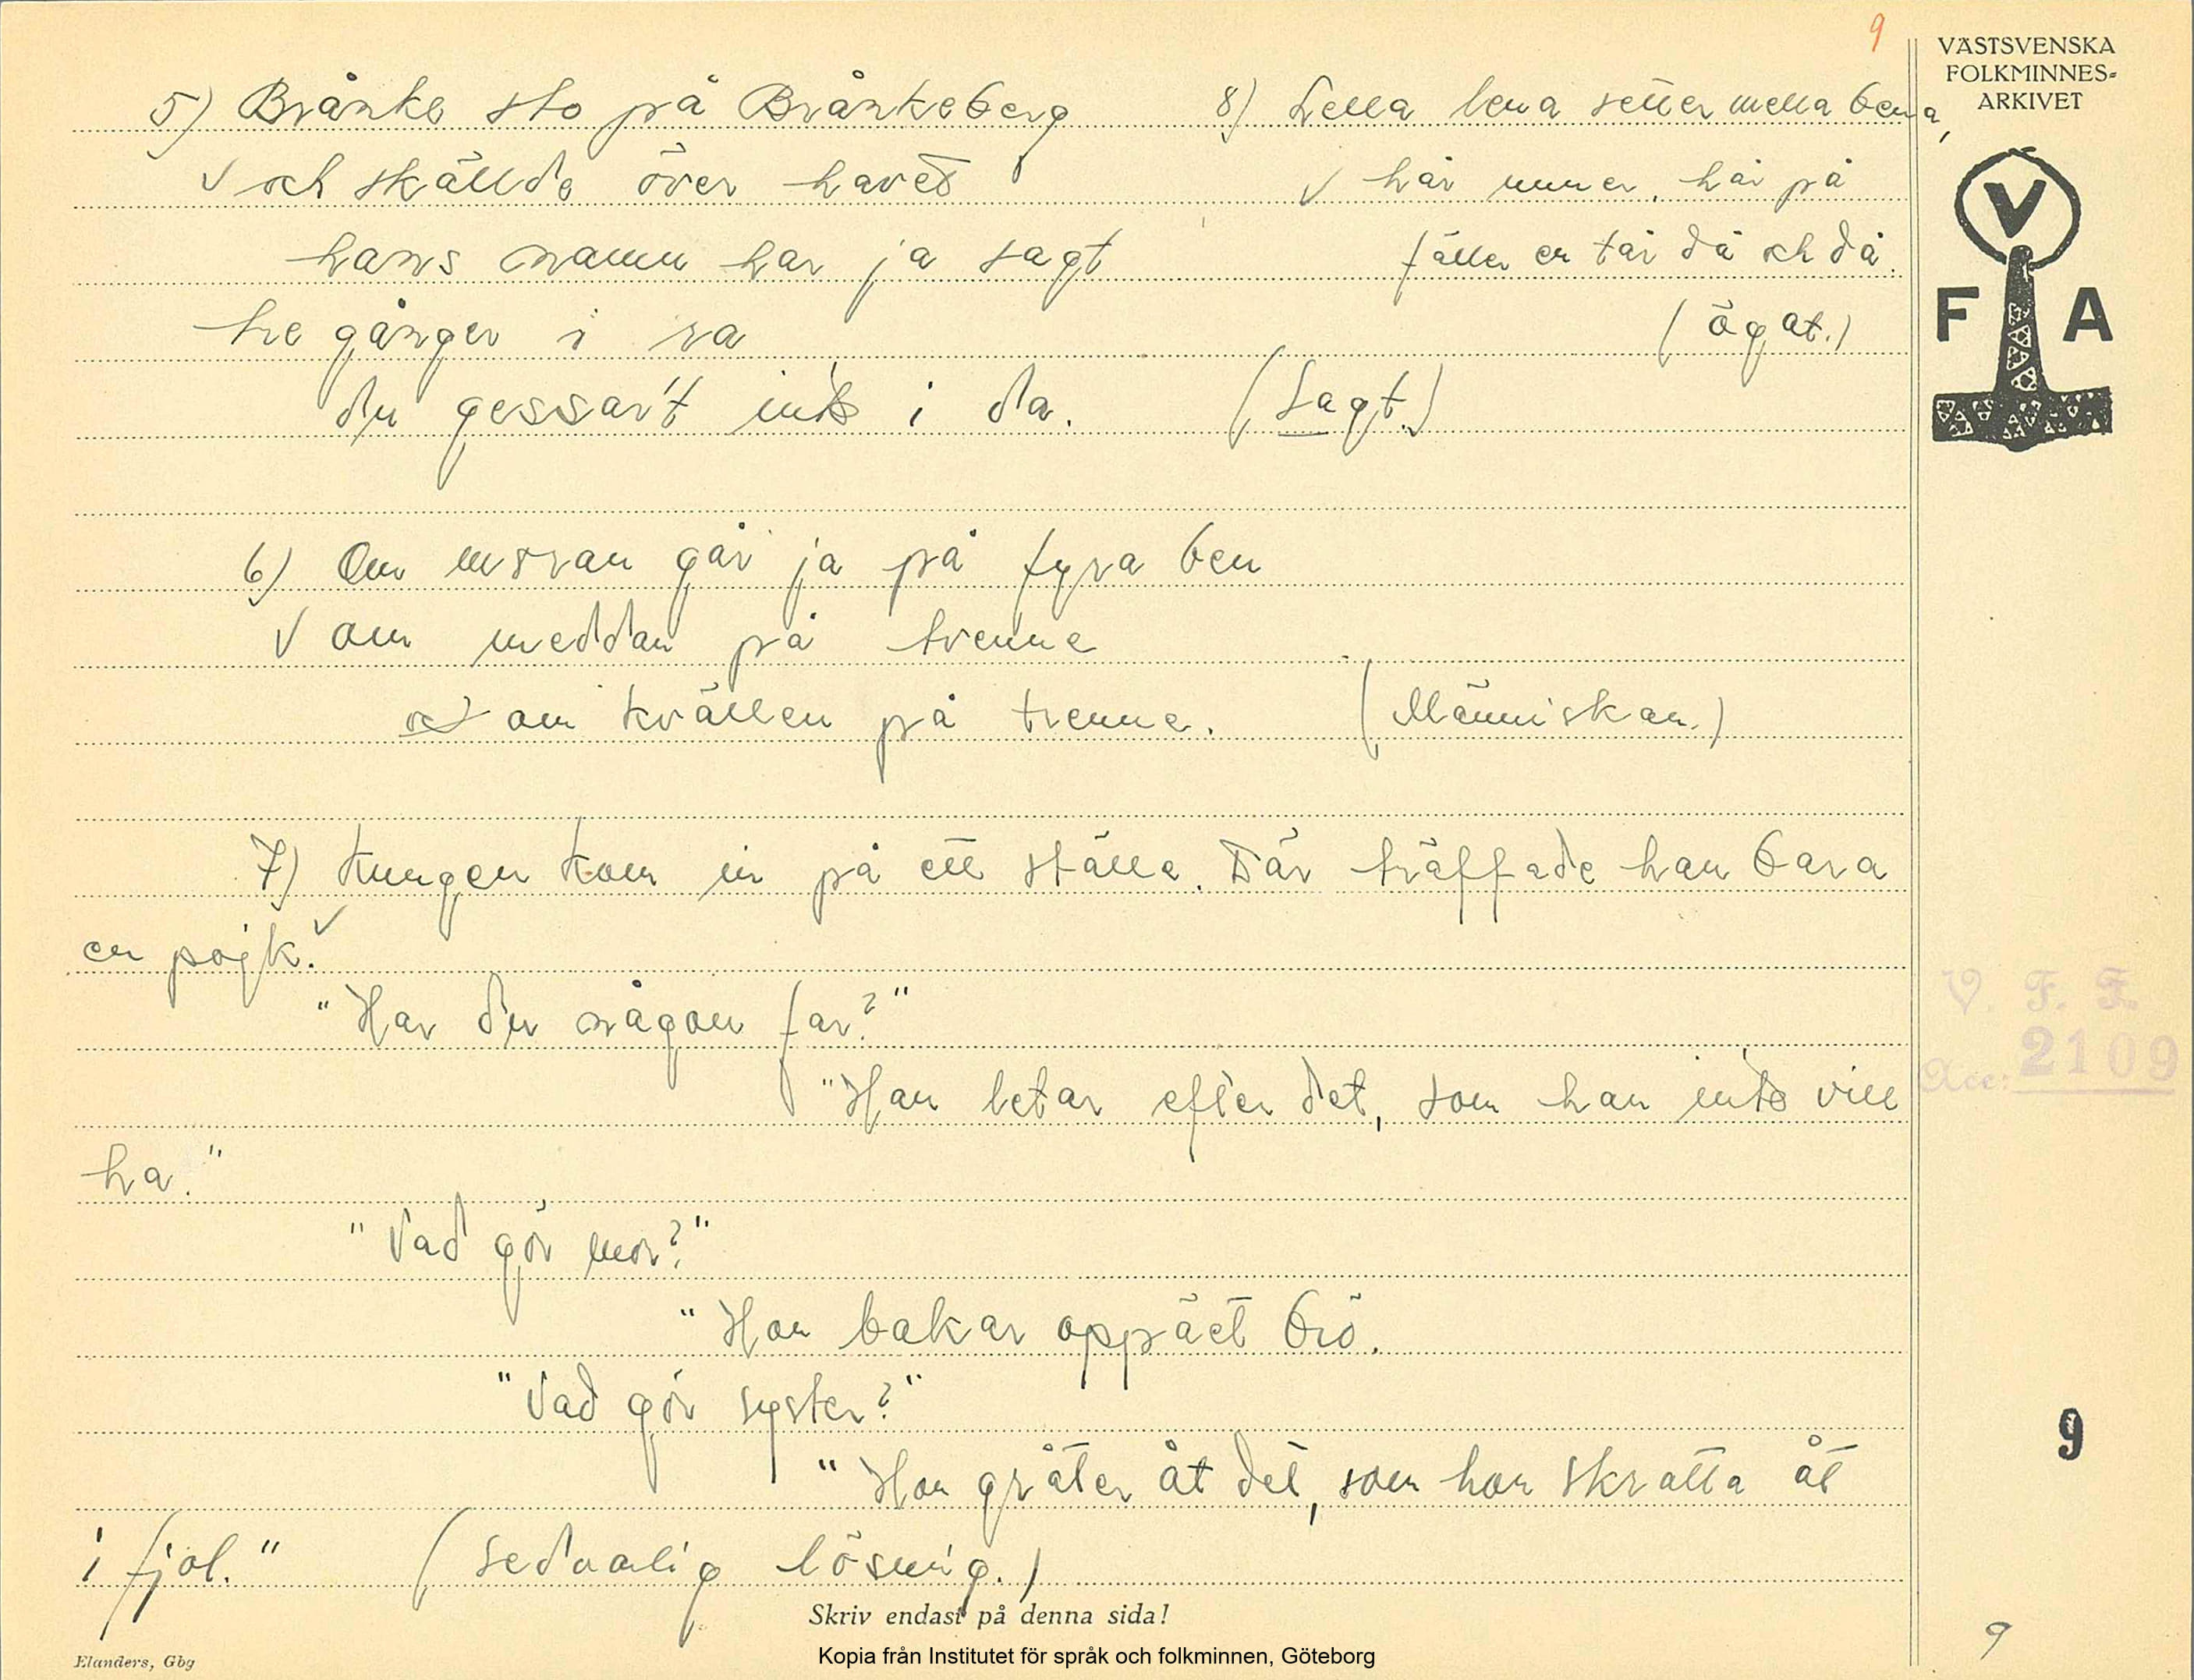 9
VÄSTSVENSKA
FOLKMINNES-
ARKIVET
V
F A
5) Brånke sto på Brånkeberg
och skällde över havet
hans namn har ja sagt
tre gånger i ra
du gessar't inte i da. (Sagt.)
8) Lella lena setter mella bena,
hår unner, hår på
fäller en tår då och då.
(ögat.)
6) Om moran går ja på fyra ben
om meddan på tvenne
och om kvällen på trenne. (Människan.)
7) Kungen kom in på ett ställe. Där träffade han bara
en pojk.
"Har du någon far?"
"Han letar efter det, som han inte vill
ha."
"Vad gör mor?"
"Hon bakar oppäet brö.
"Vad gör syster?"
"Hon gråter åt det, som hon skratta åt
i fjol." (sedvanlig lösning.)
V. F. F.
Acc: 2109
9
9
Skriv endast på denna sida!
Elanders, Gbg
Kopia från Institutet för språk och folkminnen, Göteborg